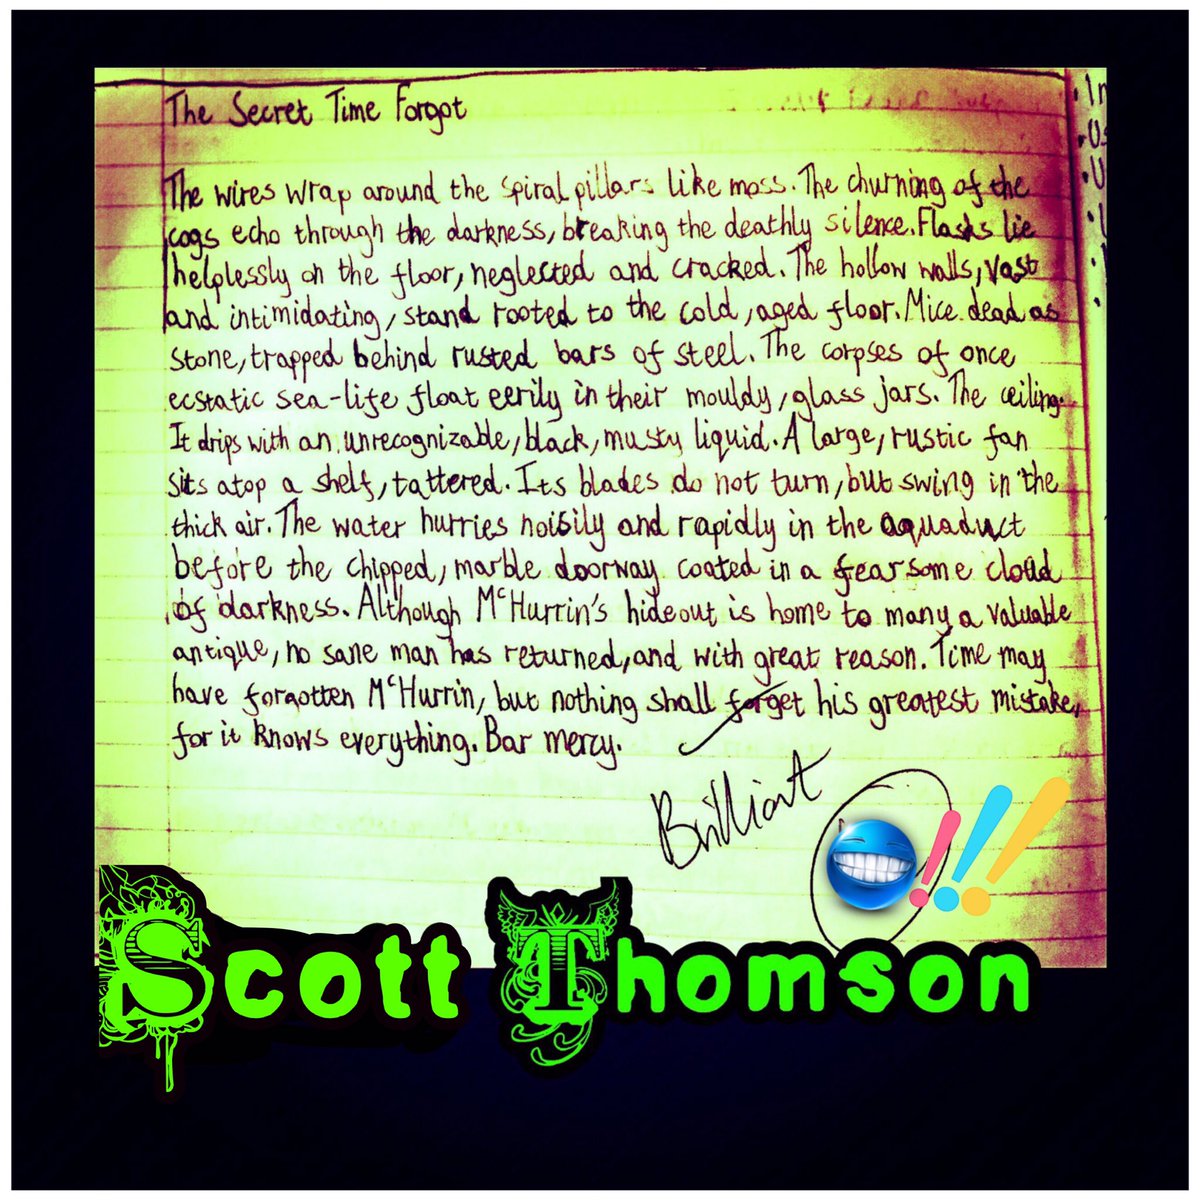 The Secret Time Forgot
The wires wrap around the spiral pillars like moss. The churning of the
cogs echo through the darkness, breaking the deathly silence. Flasks lie
helplessly on the floor, neglected and cracked. The hollow walls, vast
and intimidating, stand rooted to the cold, aged floor. Mice dead as
stone, trapped behind rusted bars of steel. The corpses of once
ecstatic sea-life float eerily in their mouldy, glass jars. The ceiling.
It drips with an unrecognizable, black, musty liquid. A large, rustic fan
sits atop a shelf, tattered. Its blades do not turn, but swing in the
thick air. The water hurries noisily and rapidly in the aquaduct
before the chipped, marble doorway coated in a fearsome cloud
of darkness. Although McHurrin's hideout is home to many a valuable
antique, no sane man has returned, and with great reason. Time may
have forgotten McHurrin, but nothing shall forget his greatest mistake,
for it knows everything. Bar mercy.
Brilliant
!!!
Scott Thomson